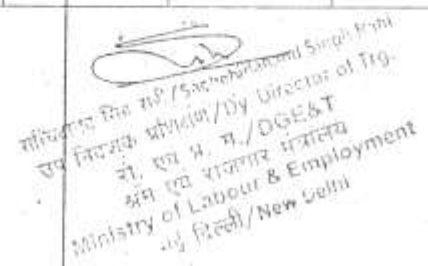 सिंह राही / Singh Rahi
उप निदेशक प्रशिक्षण/Dy Director of Trg.
रो. एवं प्र. म./DGE&T
श्रम एवं राजगार मंत्रालय
Ministry of Labour & Employment
नई दिल्ली/New Delhi